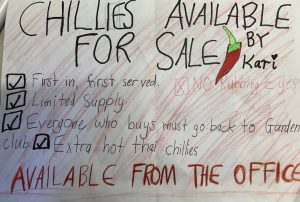 CHILLIES AVAILABLE
FOR SALE BY
Kari
First in, first served.
NO Rubbing Eyes
Limited Supply
Everyone who buys must go back to Garden
club. Extra hot thai chillies
AVAILABLE FROM THE OFFICE